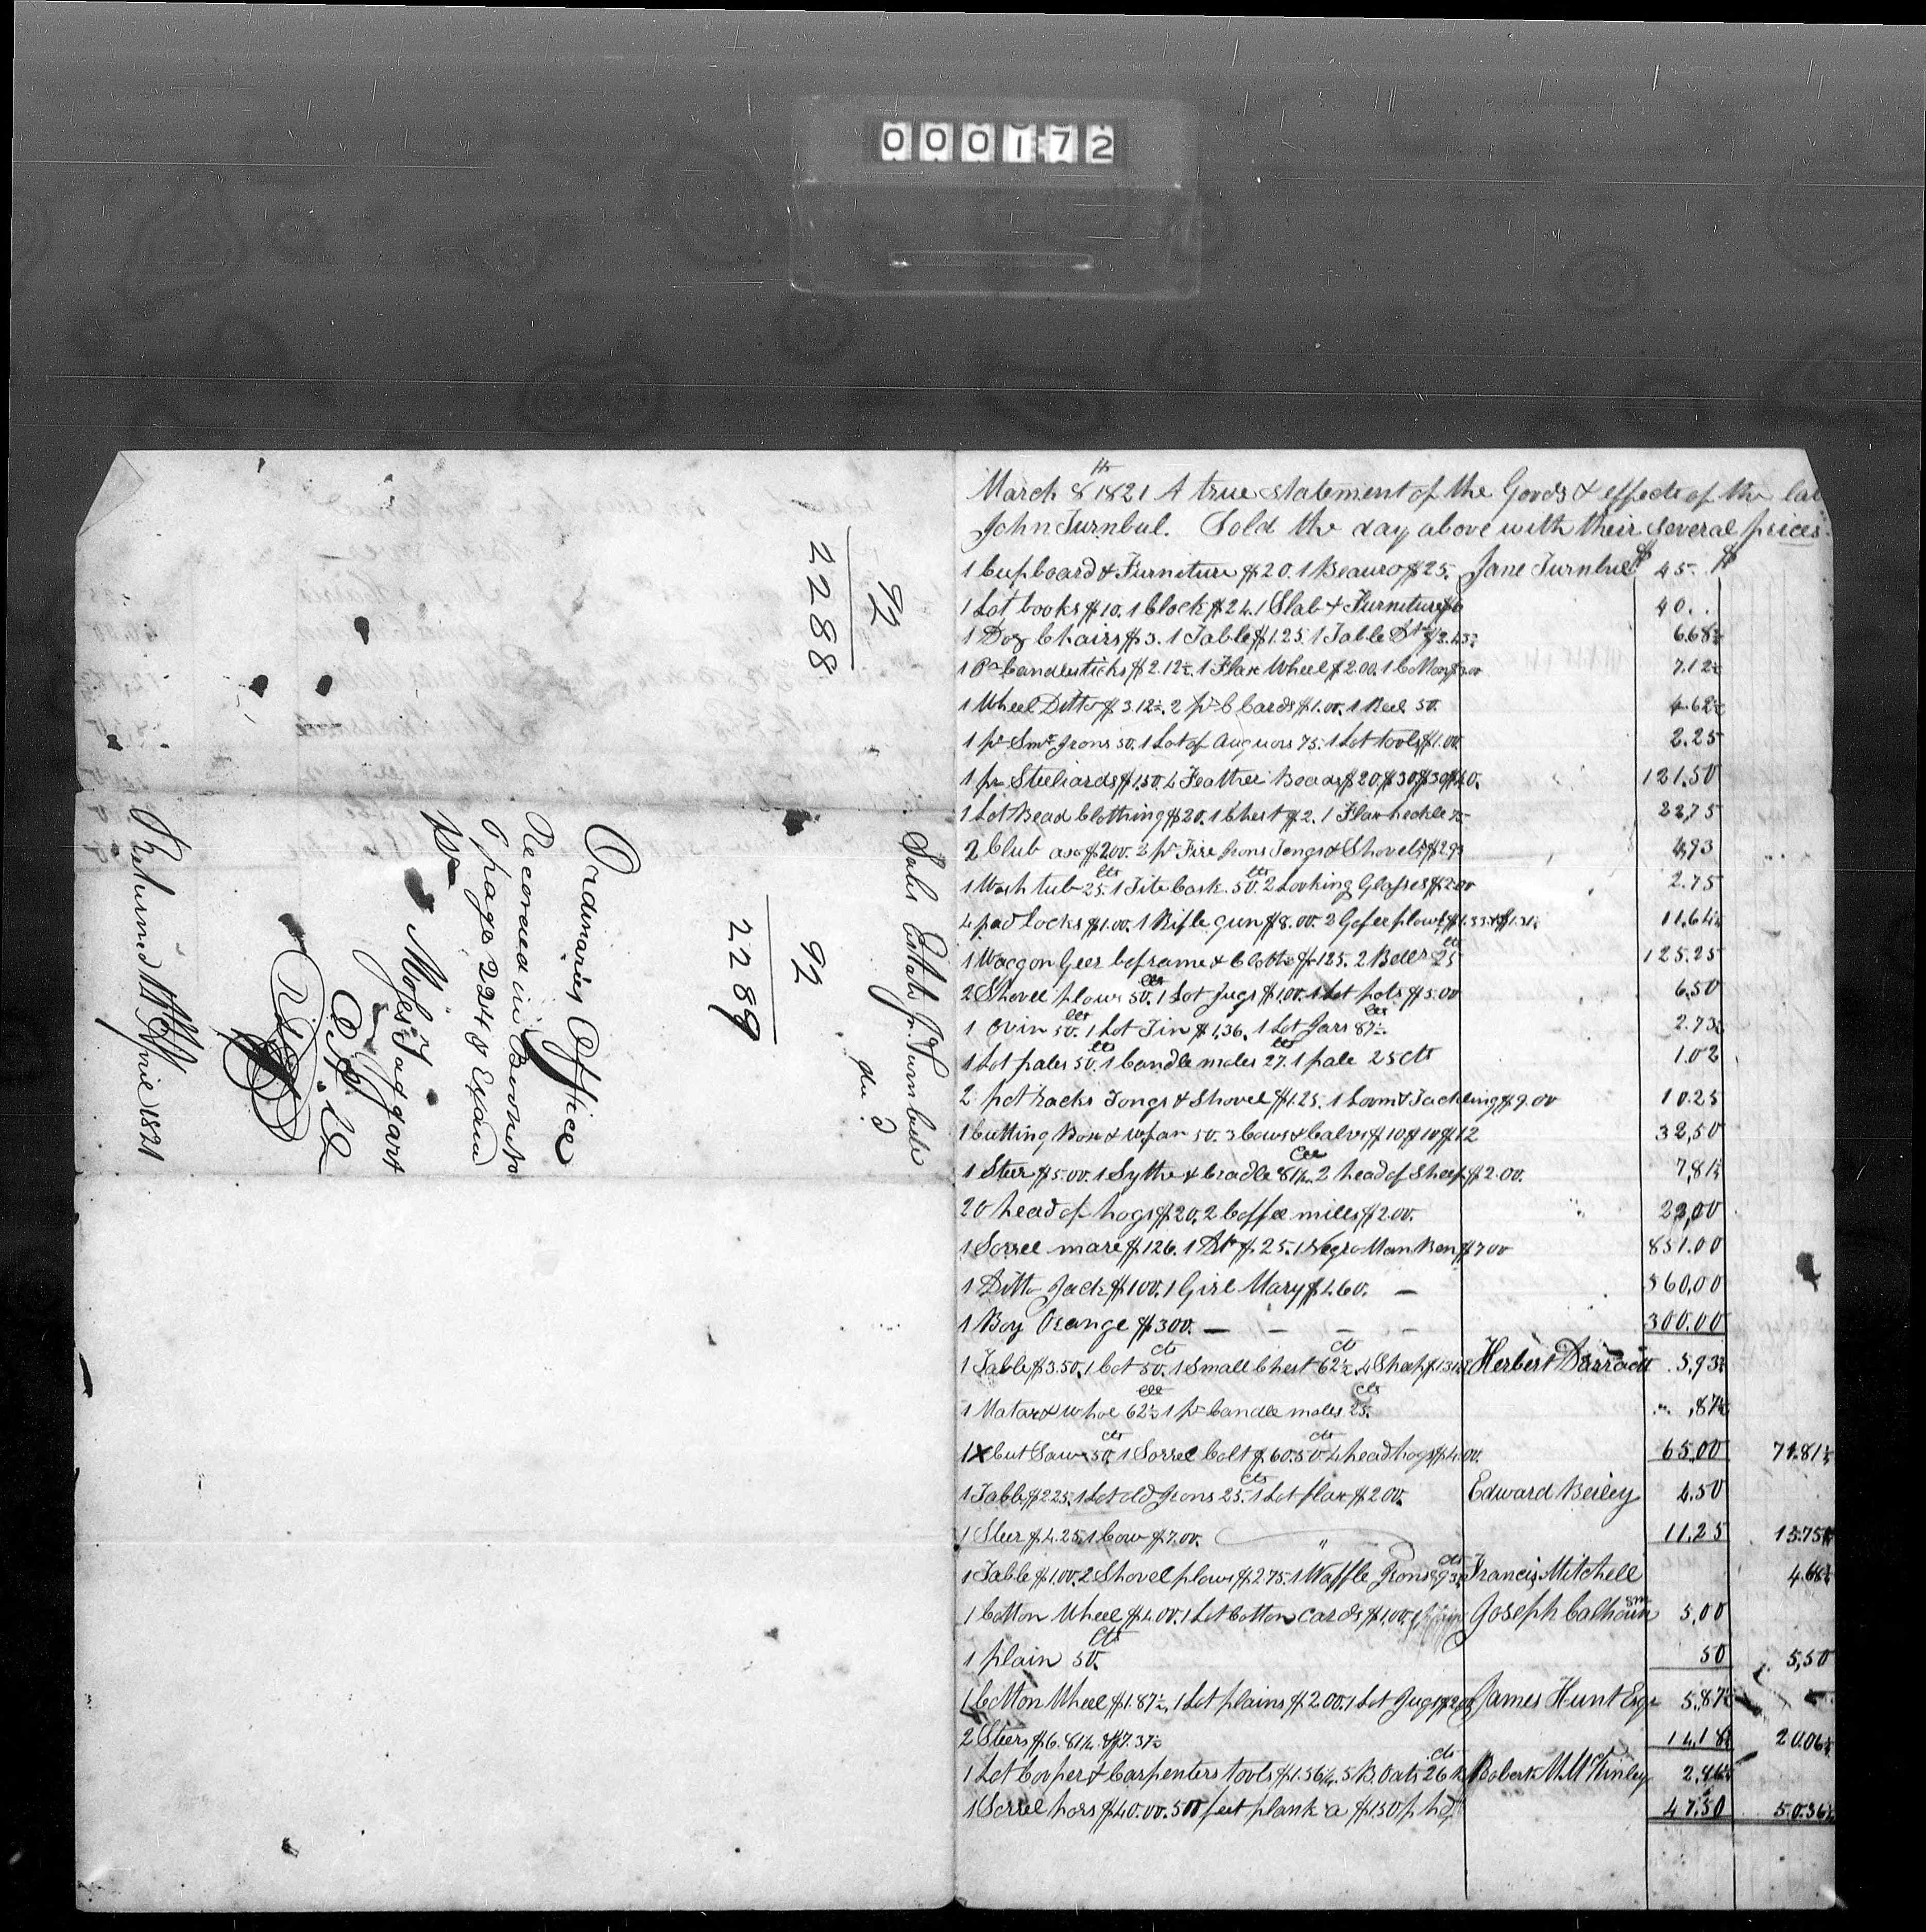 000172
92
2288
Sales Estate J. Turnbull
92
2289
Ordinaries Office
Recorded in Book
pages 224 & Exam
Moses Taggart
Returned April 1821
March 8th 1821 A true statement of the Goods & effects of the
John Turnbul. Sold the day above with their several prices
1 Cupboard & Furniture $20. 1 Beauro $25. Jane Turnbull $ 45. $
1 Lot books $10. 1 Clock $24. 1 Slab & Furniture $6 40..
1 Doz Chairs $3. 1 Table $1.25. 1 Table Do 6.68¾
1 Pr Candlesticks $2.12½. 1 Flax Wheel $2.00. 1 Cotton $3.00 7.12½
1 Wheel Ditto $3.12½. 2 pr C Cards $1.00. 1 Reel 50. 4.62½
1 pr Smo Irons 50. 1 Lot of Auguors 75. 1 Lot tools $1.00. 2.25
1 pr Steeliards $1.50. 4 Feather Beads $20 $30 $30 $40. 121.50
1 Lot Bead Clothing $20. 1 Chest $2. 1 Flax heckle 75 22,75
2 Club axs $2.00. 2 pr Fire Irons Tongs & Shovels $2.93 4,93
1 Wash tub 25. 1 Tite Cask. 50. 2 Looking Glasses $2.00 2.75
4 pad locks $1.00. 1 Rifle gun $8.00. 2 plows $1.33 & $1.31¼ 11,64¼
1 Waggon Geer & Cloth $125. 2 Bells 25 125.25
2 Shovel plows 50. 1 Lot Jugs $1.00. 1 Lot pots $5.00 6.50
1 Ovin 50. 1 Lot Tin $1,36. 1 Lot Jars 87½. 2.73½
1 Lot pales 50. 1 Candle moles 27. 1 pale 25 cts 1.02
2 pot racks Tongs & Shovel $1.25. 1 Loom & Tackling $9.00 10.25
1 Cutting Box & 50. 3 Cows & Calves $10 $10 $12 32,50
1 Steer $5.00. 1 Sythe & Cradle 81¼. 2 head of Sheep $2.00. 7,81¼
20 head of hogs $20. 2 Coffee mills $2.00. 22,00
1 Sorrel mare $126. 1 Do $25. 1 Negro Man Ben $700 851.00
1 Ditto Jack $100. 1 Girl Mary $460. — 560,00
1 Boy Orange $300. — — — — 300.00
1 Table $3.50. 1 Cot 50. 1 Small Chest 62½. 4 Sheep $1.31¼ Herbert Darracott 5,93¾
1 Matax & w hoe 62½ 1 pr Candle moles 25. ,87½
1 X Cut Saw 50. 1 Sorrel Colt $60.50 4 head hogs $4.00. 65,00 71.81¼
1 Table $2.25. 1 Lot old Irons 25. 1 Lot flax $2.00. Edward Beiley 4.50
1 Steer $4.25. 1 Cow $7.00. " 11.25 15.75
1 Table $1.00. 2 Shovel plows $2.75. 1 Waffle Irons 93¾ Francis Mitchell 4.68¾
1 Cotton Wheel $4.00. 1 Lot Cotton Cards $1.00. Joseph Calhoun 5,00
1 plain 50. 50 5,50
1 Cotton Wheel $1.87½. 1 Lot plains $2.00. 1 Lot Jugs $2.00 James Hunt Esqr 5.87½
2 Steers $6.81¼ & $7.37½ 14,18¾ 20.06¼
1 Lot Cooper & Carpenters tools $1.56¼. 5 B. Oats 26 cts Robert M McKinley 2.86¼
1 Sorrel hors $40.00. 500 feet plank a $1.50 p hd 47.50 50.36¼